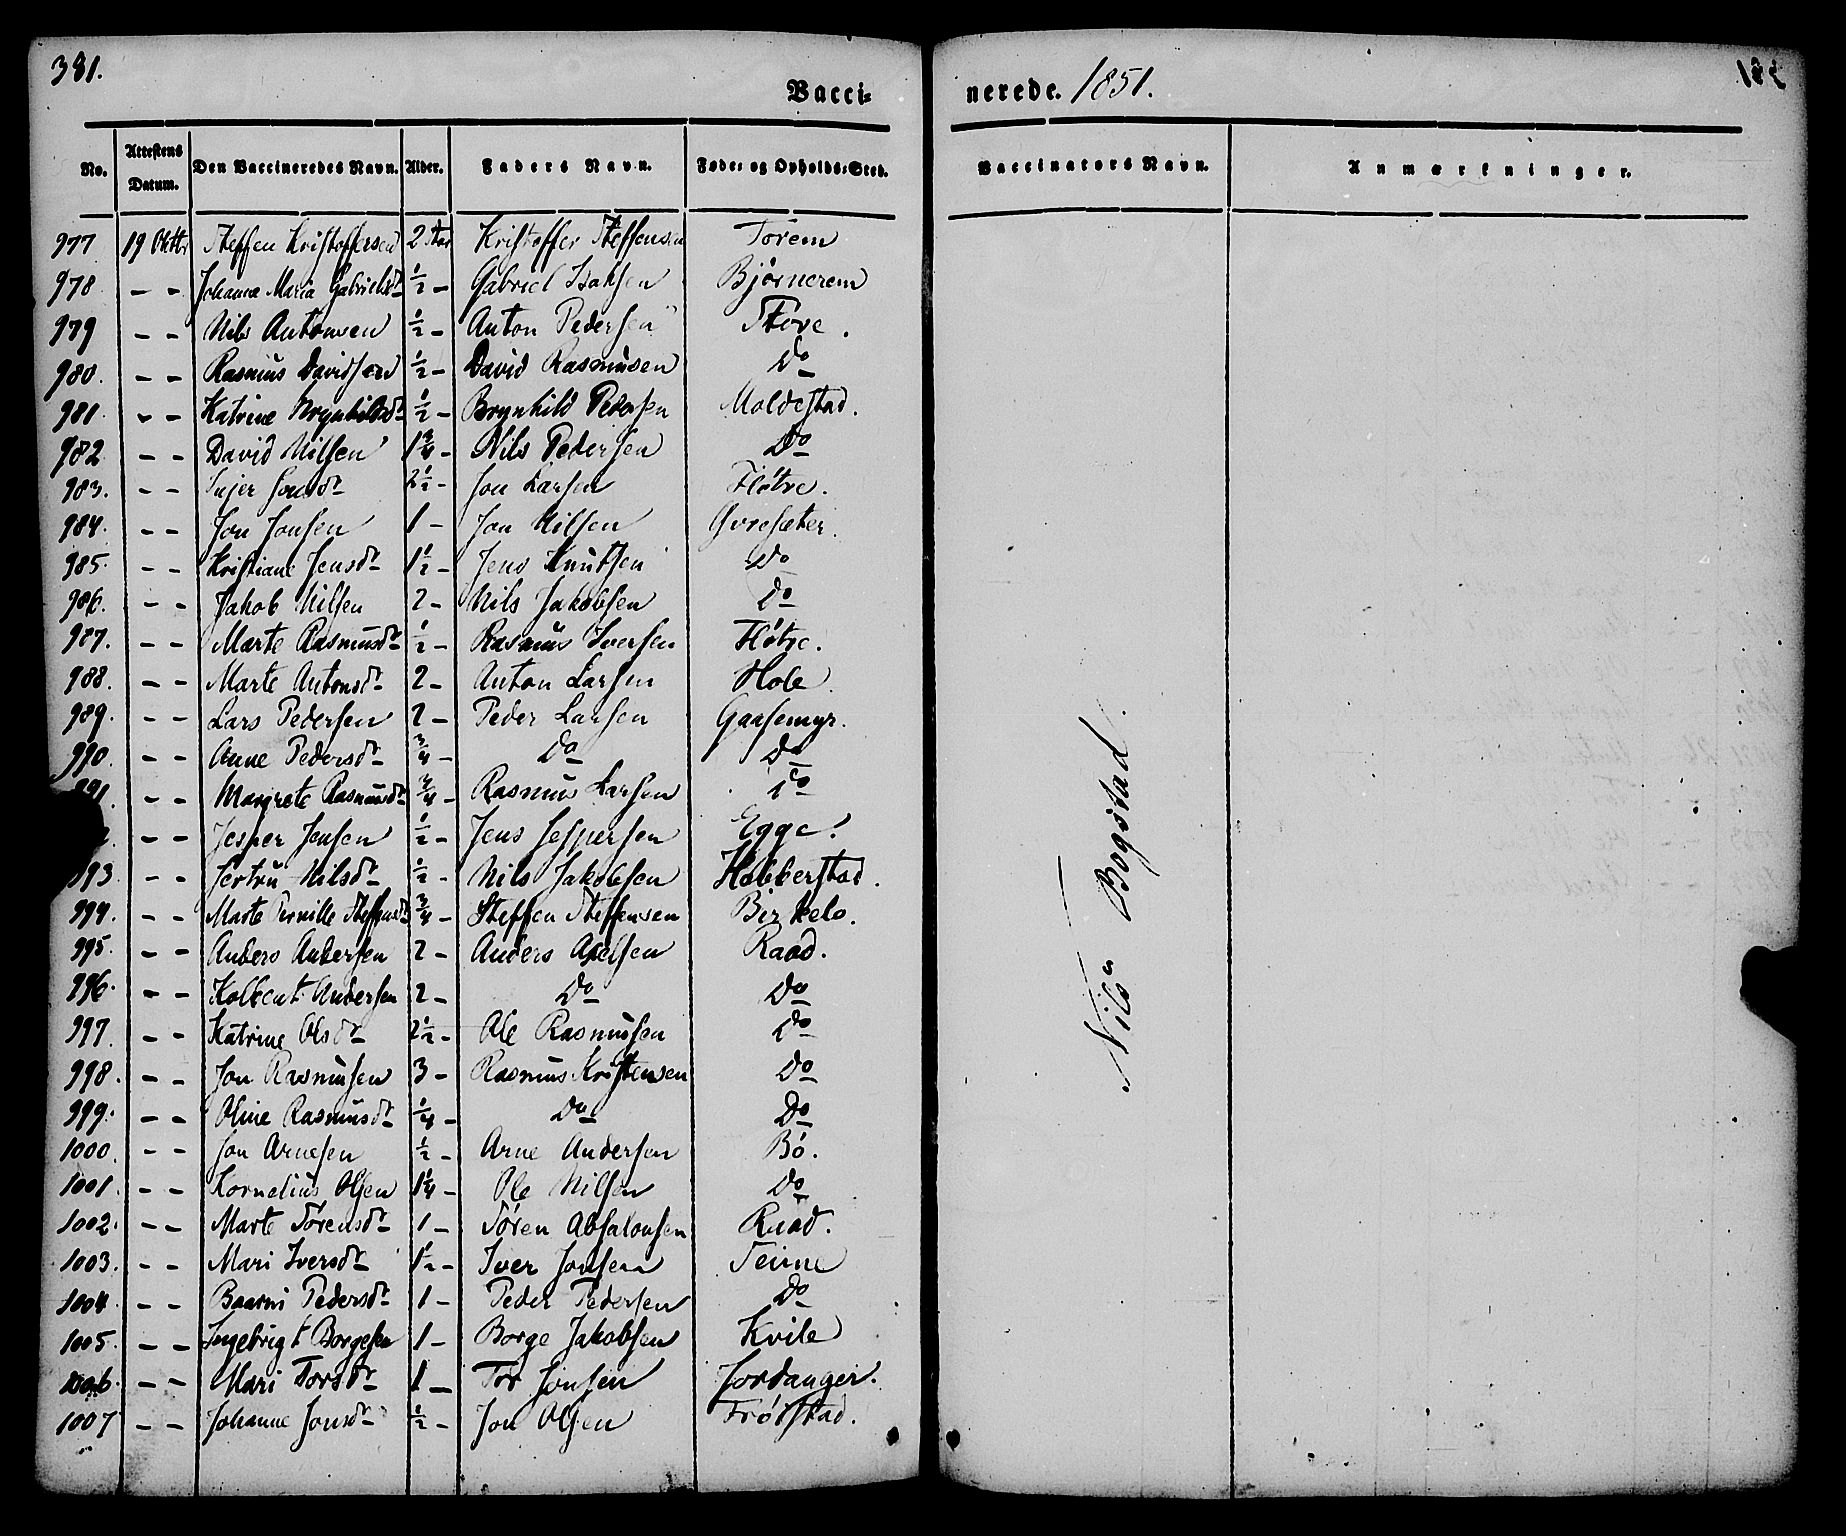 381.
Vacci- nerede. 1851.
No. Attestens Datum. Den Vaccineredes Navn. Alder. Faders Navn. Føde- og Opholds-Sted. Vaccinators Navn. Anmærkninger.
977 19 Oktbr Steffen Kristoffersen 2 Aar Kristoffer Steffensen Sørem
978 - - Johanna Maria Gabrielsdr ½ - Gabriel Isaksen Bjørnerem
979 - - Nils Antonsen ½ - Anton Pedersen Støve.
980. - - Rasmus Davidsen ½ - David Rasmusen Do
981. - - Katrine Brynhildsdr ½ - Brynhild Pedersen Moldestad.
982. - - David Nilsen 1¾ - Nils Pedersen Do
983. - - Jonsdr 2½ - Jon Larsen Fløtre.
984. - - Jon Jonsen 1 - Jon Nilsen Øvresæter.
985. - - Kristiane Jensdr 1½ - Jens Knutsen Do
986. - - Jakob Nilsen 2 - Nils Jakobsen Do
987. - - Marte Rasmusdr ½ - Rasmus Iversen Fløtre.
988. - - Marte Antonsdr 2 - Anton Larsen Hole.
989. - - Lars Pedersen 2 - Peder Larsen Gaasemyr.
990. - - Anne Pedersdr ¾ - Do Do
91. - - Margrete Rasmusdr ¾ - Rasmus Larsen Do
- - Jesper Jensen ½ - Jens Jespersen Egge.
993. - - Jertru Nilsdr ½ - Nils Jakobsen Hobberstad.
994. - - Marte Pernille Steffensdr ¾ - Steffen Steffensen Birkelo.
995. - - Anders Andersen 2 - Anders Axelsen Raad.
996. - - Kolbent Andersen 2 - Do Do
997. - - Katrine Olsdr 2½ - Ole Rasmusen Do
998. - - Jon Rasmusen 3 - Rasmus Kristensen Do
999. - - Oline Rasmusdr ¼ - Do Do
1000. - - Jon Arnesen ½ - Arne Andersen Bø.
1001. - - Kornelius Olsen 1¼ - Ole Nilsen Do
1002. - - Marte Sørensdr 1 - Søren Absalonsen Raad.
1003. - - Mari Iversdr 1½ - Iver Jonsen Teine
1004. - - Baarni Pedersdr 1 - Peder Pedersen Do
1005. - - Ingebrigt Borgesen 1 - Borge Jakobsen Kvile
1006. - - Mari Torsdr 1 - Tor Jonsen Jordanger.
1007 - - Johanne Jonsdr ½ - Jon Olsen Frøistad.
Nils Bogstad.